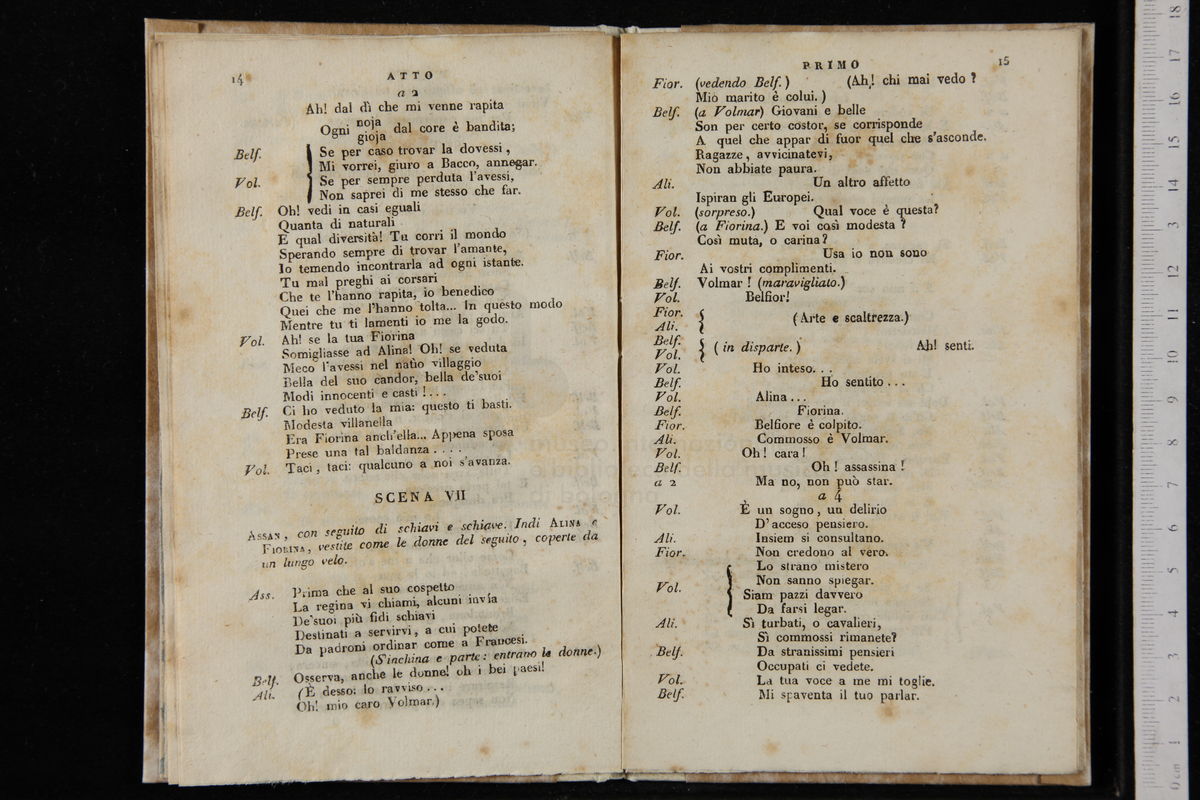 14
ATTO
a 2
Ah! dal dì che mi venne rapita
Ogni noja gioja dal core è bandita;
Belf. Se per caso trovar la dovessi,
Mi vorrei, giuro a Bacco, annegar.
Vol. Se per sempre perduta l'avessi,
Non saprei di me stesso che far.
Belf. Oh! vedi in casi eguali
Quanta di naturali
E qual diversità! Tu corri il mondo
Sperando sempre di trovar l'amante,
Io temendo incontrarla ad ogni istante.
Tu mal preghi ai corsari
Che te l'hanno rapita, io benedico
Quei che me l'hanno tolta... In questo modo
Mentre tu ti lamenti io me la godo.
Vol. Ah! se la tua Fiorina
Somigliasse ad Alina! Oh! se veduta
Meco l'avessi nel natìo villaggio
Bella del suo candor, bella de'suoi
Modi innocenti e casti!...
Belf. Ci ho veduto la mia: questo ti basti.
Modesta villanella
Era Fiorina anch'ella... Appena sposa
Prese una tal baldanza....
Vol. Taci, taci: qualcuno a noi s'avanza.
SCENA VII
ASSAN, con seguito di schiavi e schiave. Indi ALINA e
FIORINA, vestite come le donne del seguito, coperte da
un lungo velo.
Ass. Prima che al suo cospetto
La regina vi chiami, alcuni invia
De'suoi più fidi schiavi
Destinati a servirvi, a cui potete
Da padroni ordinar come a Francesi.
(S'inchina e parte: entrano le donne.)
Belf. Osserva, anche le donne! oh i bei paesi!
Ali. (È desso: lo ravviso...
Oh! mio caro Volmar.)
PRIMO
15
Fior. (vedendo Belf.) (Ah! chi mai vedo?
Mio marito è colui.)
Belf. (a Volmar) Giovani e belle
Son per certo costor, se corrisponde
A quel che appar di fuor quel che s'asconde.
Ragazze, avvicinatevi,
Non abbiate paura.
Ali. Un altro affetto
Ispiran gli Europei.
Vol. (sorpreso.) Qual voce è questa?
Belf. (a Fiorina.) E voi così modesta?
Così muta, o carina?
Fior. Usa io non sono
Ai vostri complimenti.
Belf. Volmar! (maravigliato.)
Vol. Belfior!
Fior.
Ali. (Arte e scaltrezza.)
Belf.
Vol. (in disparte.) Ah! senti.
Vol. Ho inteso...
Belf. Ho sentito...
Vol. Alina...
Belf. Fiorina.
Fior. Belfiore è colpito.
Ali. Commosso è Volmar.
Vol. Oh! cara!
Belf. Oh! assassina!
a 2 Ma no, non può star.
a 4
Vol. È un sogno, un delirio
D'acceso pensiero.
Ali. Insiem si consultano.
Fior. Non credono al vero.
Vol. Lo strano mistero
Non sanno spiegar.
Siam pazzi davvero
Da farsi legar.
Ali. Sì turbati, o cavalieri,
Sì commossi rimanete?
Belf. Da stranissimi pensieri
Occupati ci vedete.
Vol. La tua voce a me mi toglie.
Belf. Mi spaventa il tuo parlar.